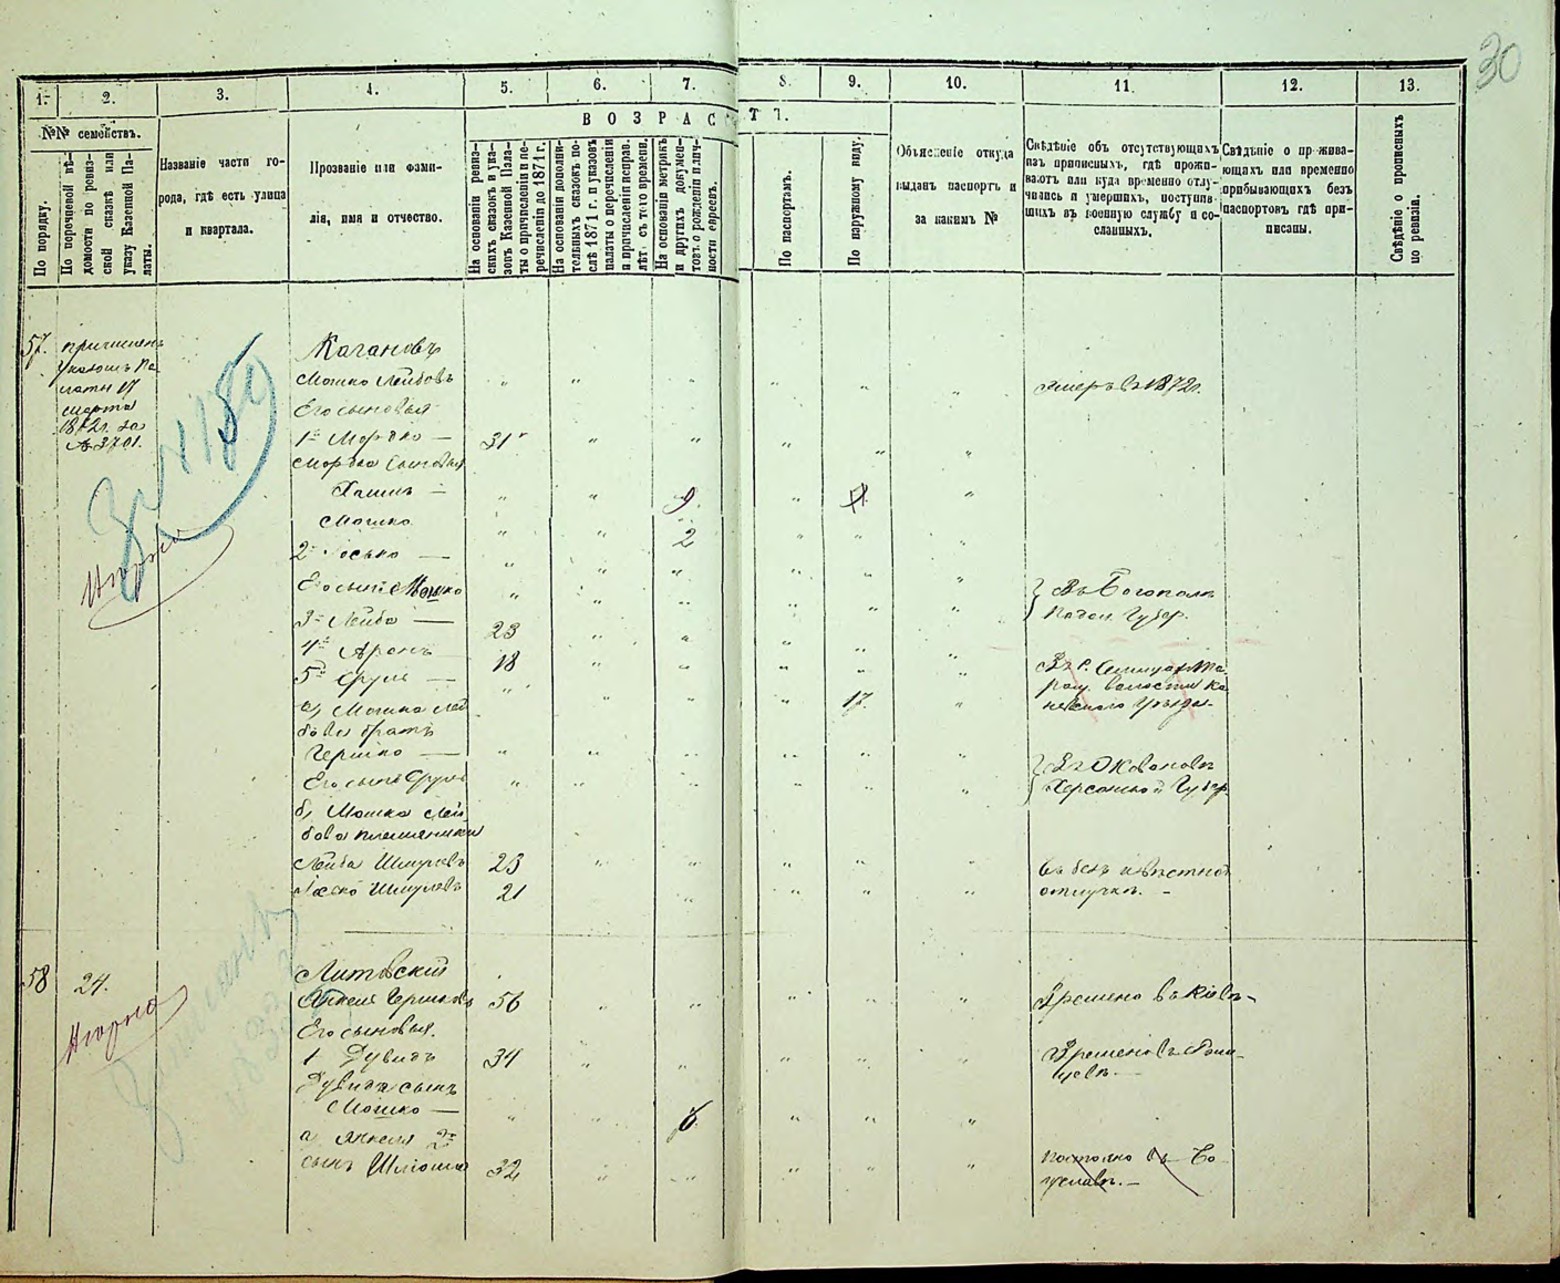 30
1. 2. 3. 4. 5. 6. 7. 8. 9. 10. 11. 12. 13.
№№ семействъ.
По порядку.
По поречневой вѣ-
домости по ревиз-
ской сказкѣ или
указу Казенной Па-
латы.
Названіе части го-
рода, гдѣ есть улица
и квартала.
Прозваніе или фами-
лія, имя и отчество.
ВОЗРАСТЪ.
На основаніи ревиз-
скихъ сказокъ и ука-
зовъ Казенной Пала-
ты о причисленіи и пе-
речисленіи до 1871 г.
На основаніи дополни-
тельныхъ сказокъ по-
слѣ 1871 г. и указовъ
палаты о перечисленіи
и причисленіи исправ.
лѣтъ съ того времени.
На основаніи метрикъ
и другихъ докумен-
товъ о рожденіи и лич-
ности евреевъ.
По паспортамъ.
По наружному виду.
Объясненіе откуда
выданъ паспортъ и
за какимъ №
Свѣдѣніе объ отсутствующихъ
изъ приписныхъ, гдѣ прожи-
ваютъ или куда временно отлу-
чились и умершихъ, поступив-
шихъ въ военную службу и со-
сланныхъ.
Свѣдѣніе о прожива-
ющихъ или временно
прибывающихъ безъ
паспортовъ гдѣ при-
писаны.
Свѣдѣніе о прописныхъ
по ревизіи.
57. причисленъ
указомъ Па-
латы 17
марта
1872г. за
№ 3701.
Кагановъ
Мошко Лейбовъ
умеръ въ 1872г.
Его сыновья
1й Мордко — 31
Мордка сыновья
Хаимъ — 9
Мошко 2
2й Іосько —
Его сынъ Мошко
Въ Богополѣ
Подол. Губер.
3й Лейба — 23
4й Аронъ 18
5й Сруль — 17.
Волости Ка-
невскаго Уѣзда
а, Мошка Лей
бова братъ
Гершко —
Его сынъ Сруль
Херсонской Губер.
б, Мошка Лей
бова племянники
Лейба Шмулевъ 23
Іоско Шмулевъ 21
въ безъизвѣстной
отлучкѣ. -
58 24.
Литовскій
Янкель Гершковъ 56
Времено въ Кіевѣ-
Его сыновья.
1 Дувидъ 34
Времено въ
Дувида сынъ
Мошко — 6
а Янкеля 2й
сынъ Шліома 32
постояно въ Бо
гуславѣ. —